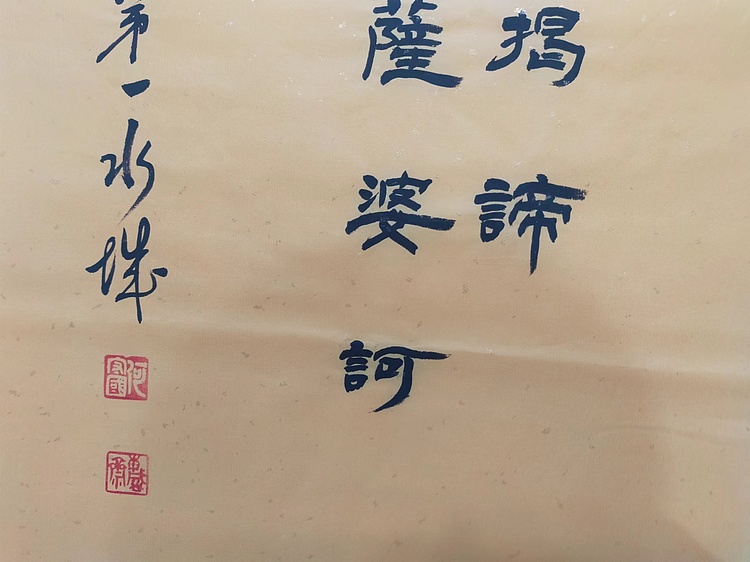 揭諦
薩婆訶
第一水城